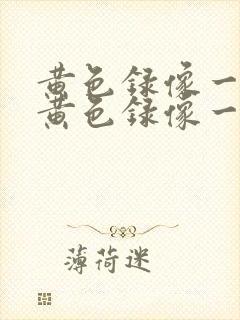 黄色録像一
黄色録像一
薄荷迷